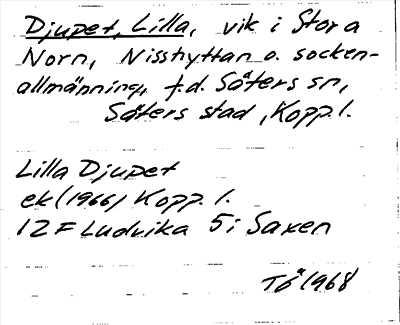 Djupet, Lilla, vik i Stora
Norn, Nisshyttan o. socken-
allmänning, f.d. Säters sn,
Säters stad, Kopp. l.
Lilla Djupet
ek (1966) Kopp. l.
12 F Ludvika 5 i Saxen
TÖ 1968